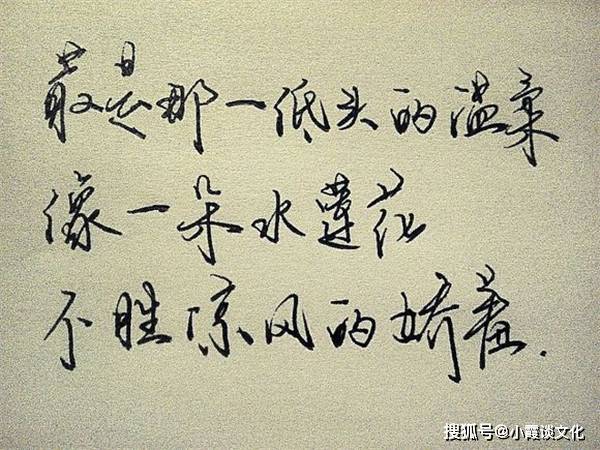 最是那一低头的温柔
像一朵水莲花
不胜凉风的娇羞.
搜狐号@小霞谈文化